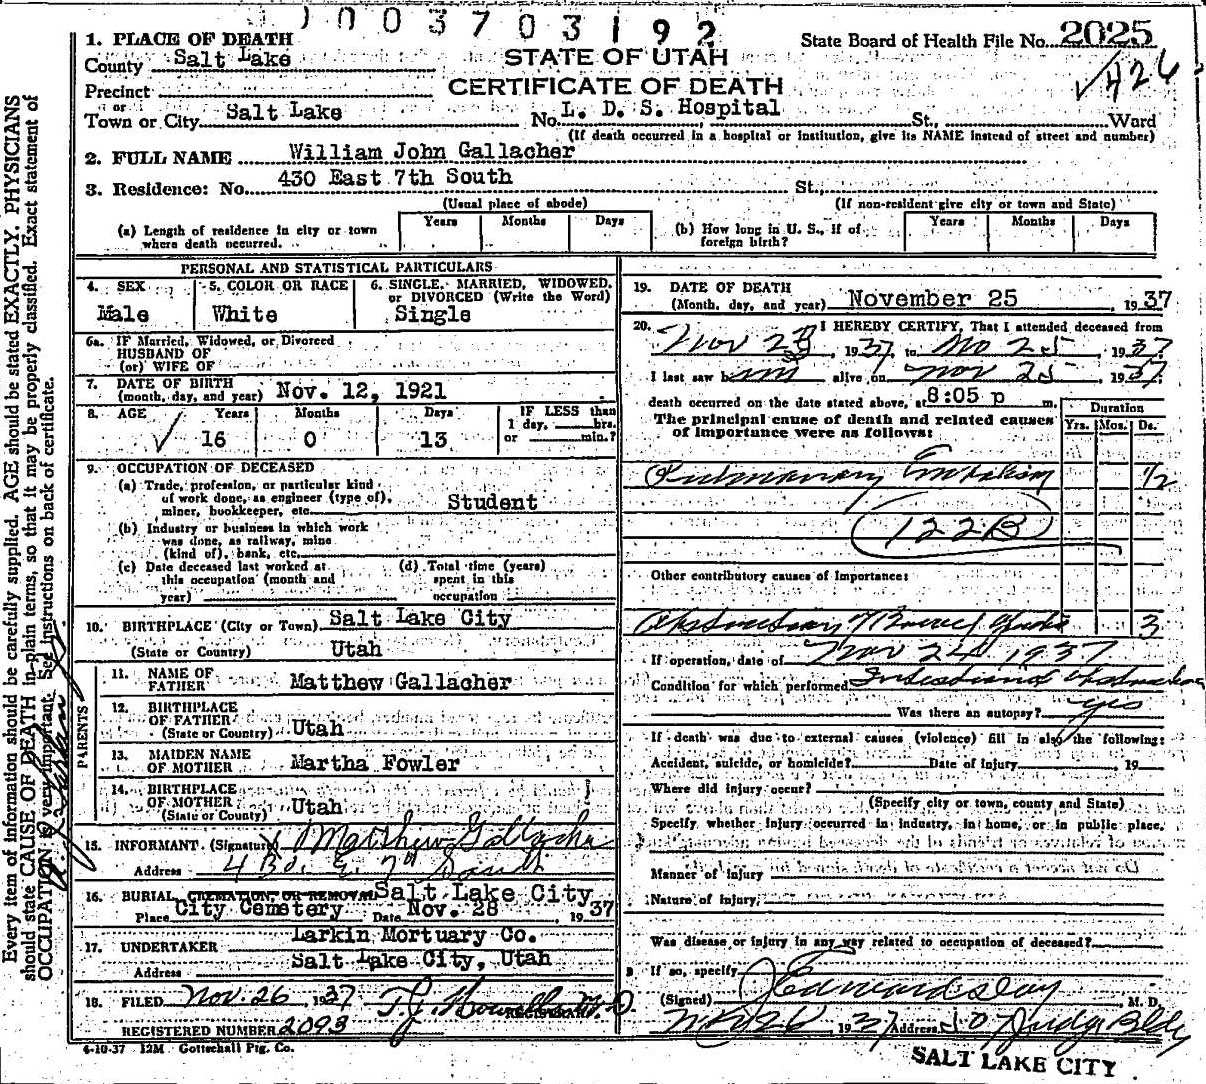 1003703192
1. PLACE OF DEATH
County Salt Lake
Precinct
or
Town or City Salt Lake
STATE OF UTAH
CERTIFICATE OF DEATH
State Board of Health File No. 2025
426
No. L. D. S. Hospital St., Ward
(If death occurred in a hospital or institution, give its NAME instead of street and number)
2. FULL NAME William John Gallacher
3. Residence: No. 430 East 7th South St.,
(Usual place of abode) (If non-resident give city or town and State)
(a) Length of residence in city or town where death occurred. Years Months Days
(b) How long in U. S., if of foreign birth? Years Months Days
PERSONAL AND STATISTICAL PARTICULARS
4. SEX Male
5. COLOR OR RACE White
6. SINGLE, MARRIED, WIDOWED, or DIVORCED (Write the Word) Single
6a. IF Married, Widowed, or Divorced
HUSBAND OF
(or) WIFE OF
7. DATE OF BIRTH
(month, day, and year) Nov. 12, 1921
8. AGE Years Months Days IF LESS than
16 0 13 1 day, hrs.
or min.?
9. OCCUPATION OF DECEASED
(a) Trade, profession, or particular kind
of work done, as engineer (type of),
miner, bookkeeper, etc. Student
(b) Industry or business in which work
was done, as railway, mine
(kind of), bank, etc.
(c) Date deceased last worked at
this occupation (month and
year)
(d) Total time (years)
spent in this
occupation
10. BIRTHPLACE (City or Town) Salt Lake City
(State or Country) Utah
PARENTS
11. NAME OF
FATHER Matthew Gallacher
12. BIRTHPLACE
OF FATHER
(State or Country) Utah
13. MAIDEN NAME
OF MOTHER Martha Fowler
14. BIRTHPLACE
OF MOTHER
(State or Country) Utah
15. INFORMANT (Signature) Matthew Gallacher
Address 430. E. 7th South
16. BURIAL, CREMATION, OR REMOVAL Salt Lake City
Place City Cemetery Date Nov. 28 1937
17. UNDERTAKER Larkin Mortuary Co.
Address Salt Lake City, Utah
18. FILED Nov. 26 1937 T. J. Howells M. D.
REGISTRAR
REGISTERED NUMBER 2093
4-10-37 12M Gottschall Ptg. Co.
19. DATE OF DEATH
(Month, day, and year) November 25 1937
20. I HEREBY CERTIFY, That I attended deceased from
Nov 23, 1937, to No 25, 1937
I last saw him alive on Nov 25, 1937
death occurred on the date stated above, at 8:05 p m.
The principal cause of death and related causes
of importance were as follows:
Duration
Yrs. Mos. Ds.
Pulmonary Embolism 1/2
122B
Other contributory causes of importance:
Obstruction of Bowel 3
If operation, date of Nov 24 1937
Condition for which performed Intestional Obstruction
Was there an autopsy? yes
If death was due to external causes (violence) fill in also the following:
Accident, suicide, or homicide? Date of injury 19
Where did injury occur?
(Specify city or town, county and State)
Specify whether injury occurred in industry, in home, or in public place.
Manner of injury
Nature of injury
Was disease or injury in any way related to occupation of deceased?
If so, specify
(Signed) M. D.
Nov 26, 1937 Address Judge Bldg
SALT LAKE CITY
Every item of information should be carefully supplied. AGE should be stated EXACTLY. PHYSICIANS
should state CAUSE OF DEATH in plain terms, so that it may be properly classified. Exact statement of
OCCUPATION is very important. See instructions on back of certificate.